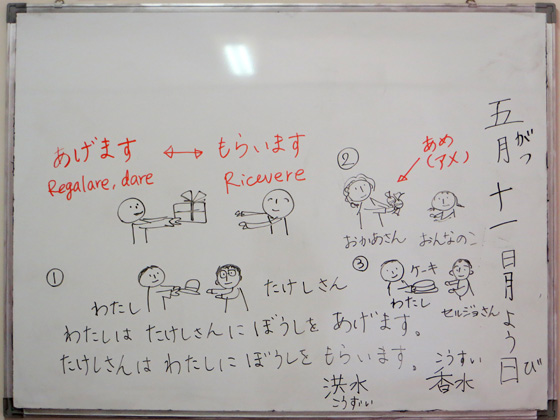 五月十一日月よう日
がつ
び
あげます ↔ もらいます
Regalare, dare
Ricevere
②
あめ
(アメ)
おかあさん
おんなのこ
①
わたし
たけしさん
③
ケーキ
わたし
セルジョさん
わたしは たけしさんに ぼうしを あげます。
たけしさんは わたしに ぼうしを もらいます。
洪水
こうずい
こうすい
香水